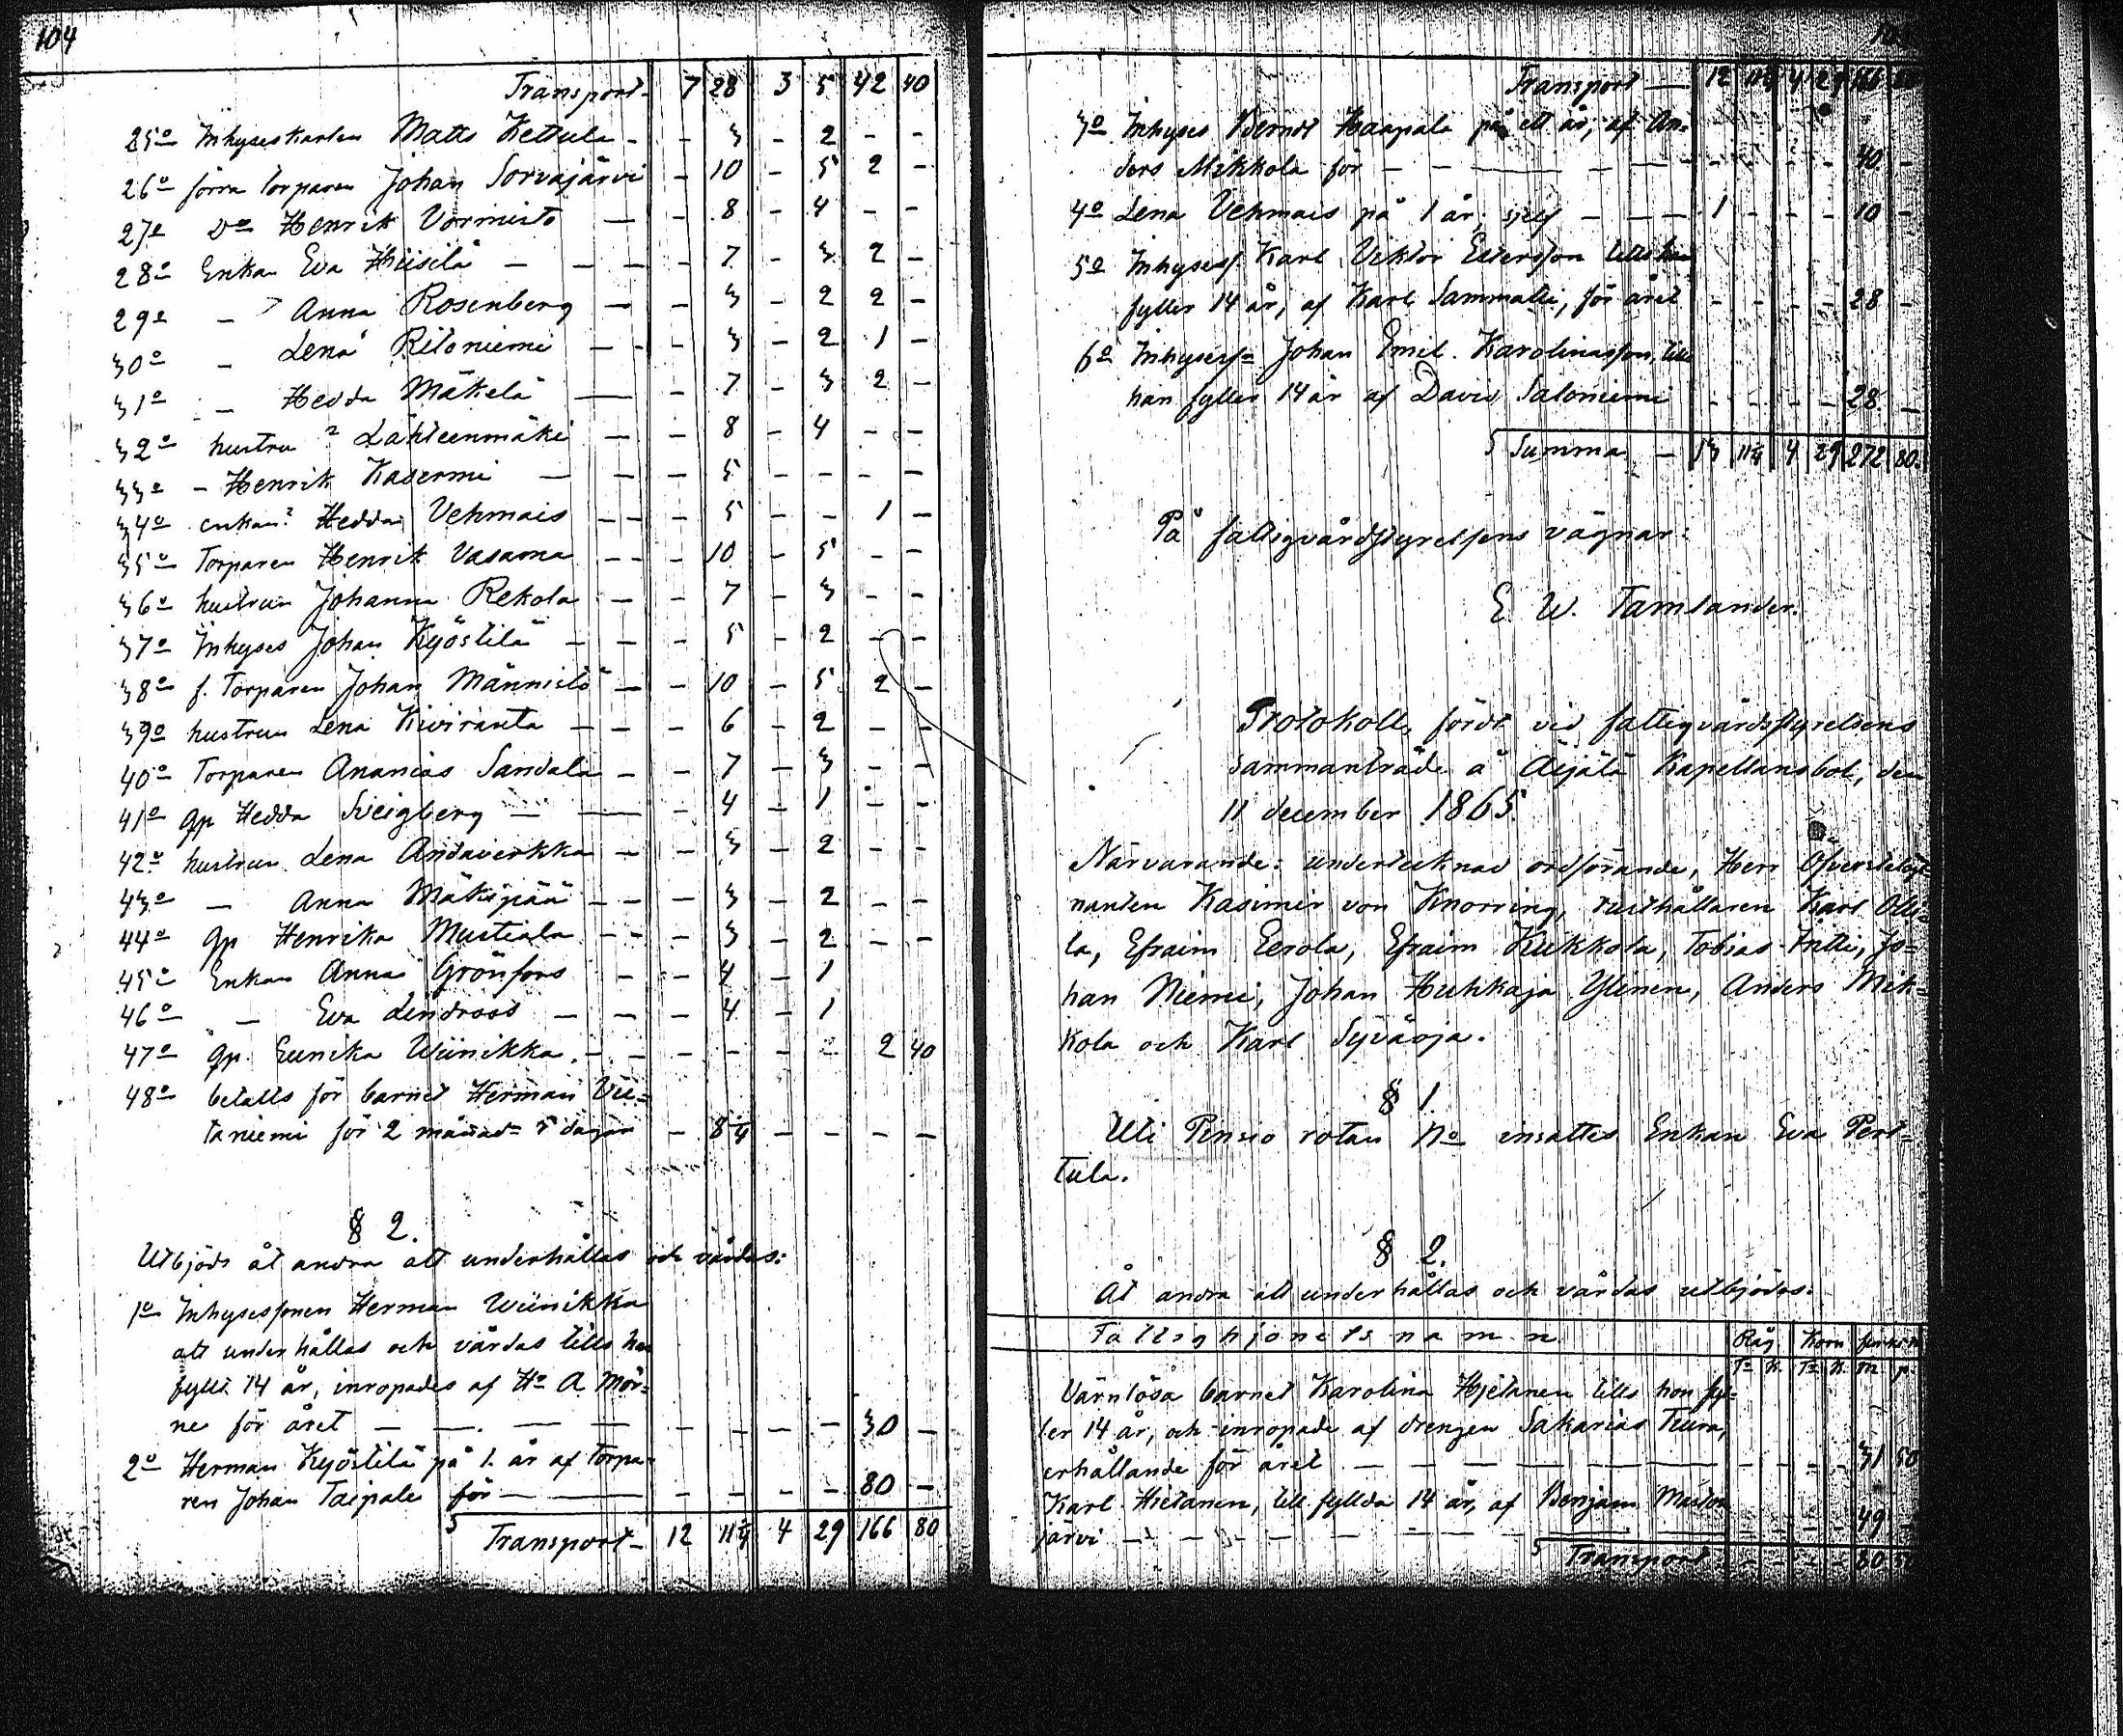 104
Transport - 7 28 3 5 42 40
25o Inhyseskarlen Matts Kettula - - 3 - 2 - -
26o förra torparen Johan Sorvajärvi - 10 - 5 2 -
27o Do Henrik Vormisto - - 8 - 4 - -
28o Enkan Eva Hiisilä - - - - 7 - 3 2 -
29o - Anna Rosenberg - - 3 - 2 2 -
30o - Lena Riloniemi - - - 3 - 2 1 -
31o - Hedda Mäkelä - - 7 - 3 2 -
32o hustru Lähteenmäki - - 8 - 4 - -
33o - Henrik Kasermi - - 5 - - - -
34o enkan Hedda Vehmais - - - 5 - - 1 -
35o Torparen Henrik Vasama - - - 10 - 5 - -
36o hustrun Johanna Rekola - - - 7 - 3 - -
37o Inhyses Johan Kyöstilä - - - 5 - 2 - -
38o f. Torparen Johan Männistö - - 10 - 5 2 -
39o hustrun Lena Kiviranta - - - 6 - 2 - -
40o Torparen Ananias Sandala - - 7 - 3 - -
41o gp Hedda - - - 4 - 1 - -
42o hustrun Lena Andaverkka - - 3 - 2 - -
43o - Anna Mäkipää - - - 3 - 2 - -
44o gp Henrika Mustiala - - - 3 - 2 - -
45o Enkan Anna Grönfors - - 4 - 1
46o - Eva Lindroos - - - 4 - 1
47o gp. Eunika Wiinikka - - - - - - 2 40
48o betalts för barnet Herman Vii=
taniemi för 2 månad= 5 dagar - 8¼ - - - -
§ 2.
Utbjöds åt andra att underhållas och vårdas:
1o Inhysessonen Herman Wiinikka
att underhållas och vårdas tills han
fyllt 14 år, inropades af Hr A. Mör=
ne för året - - - - - - - - - 30 -
2o Herman Kyöstilä på 1. år af Torpa=
ren Johan Taipale för - - - - - 80 -
S Transport - 12 11¼ 4 29 166 80
Transport - 12 11¼ 4 29 166 80
3o Inhyses Berndt Haapala på ett år, af An=
ders Mikkola för - - - - - - - - 40 -
4o Lena Vehmais på 1 år, sjelf - - - 1 - - - 10 -
5o Inhysess. Karl Viktor Estersson tills han
fyller 14 år, af Karl Sammatti, för året - - - - 28 -
6o Inhysess= Johan Emil Karolinasson, till
han fyller 14 år af David Saloniemi - - - - 28 -
S Summa - 13 11¼ 4 29 272 80
På fattigvårdsstyrelsens vägnar:
E. W. Tamlander.
Protokoll, fördt vid fattigvårdsstyrelsens
sammanträde å Äijälä Kapellansbol, den
11 december 1865.
Närvarande: undertecknad ordförande, Herr Öfverstelöjt
nanten Kasimir von Knorring, rusthållaren Karl Olli=
la, Efraim Eerola, Efraim Kukkola, Tobias Intti, Jo=
han Niemi, Johan Hukkaja Ylinen, Anders Mik=
kola och Karl Syvärja.
§ 1.
Uti Pensio rotan No insattes Enkan Eva Pert=
tula.
§ 2.
Åt andra att underhållas och vårdas utbjödes:
Fattighjonets namn Råg Korn
Tr K. Tr K. M. p.
Värnlösa barnet Karolina Hjetanen tills hon fyl=
ler 14 år, och inropade af drengen Sakarias Tuura,
erhållande för året - - - - - - - - 31 50
Karl Hietanen, till fyllda 14 år, af Benjam
järvi - - - - - - - - 49 -
S Transport - - - - 80 50